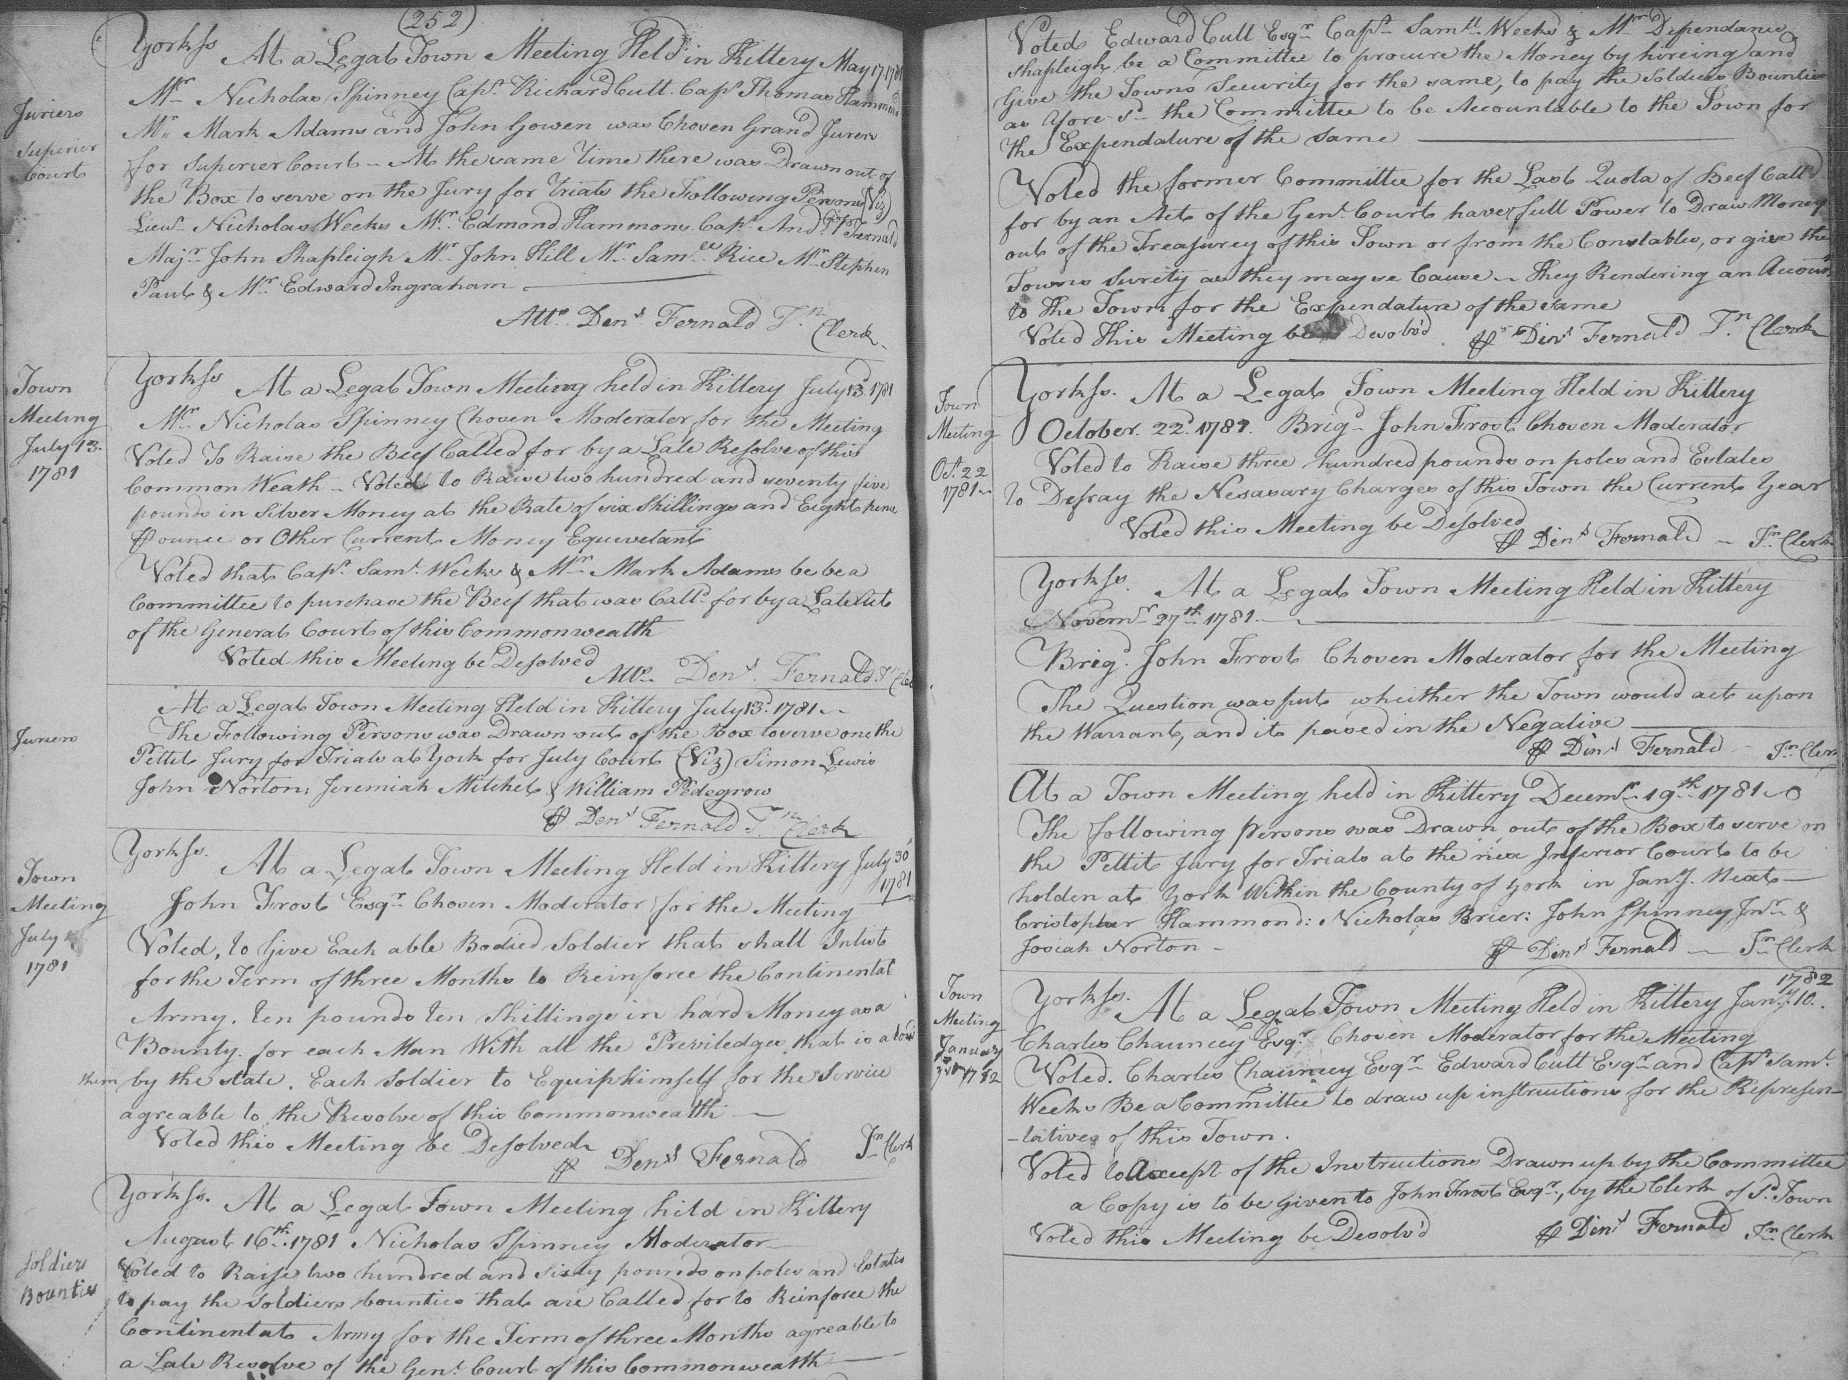 (252)
Yorkss At a Legal Town Meeting Held in Kittery May 17. 1781
Juriers
Superier
Court
Mr Nicholas Spinney Capt. Richard Cutt. Capt Thomas Hammond
Mr Mark Adams and John Gowen was Choven Grand Jurers
for Superier Court – At the same time there was Drawn out of
the Box to serve on the Jury for Trials the Following Persons (Viz)
Lieut. Nicholas Weeks Mr. Edmond Hammons Capt And Ps Fernald
Majr John Shapleigh Mr John Hill Mr. Samll Rice Mr Stephen
Paul & Mr Edward Ingraham
Atts. Dens Fernald Tn
Clerk
Town
Meeting
July 13.
1781
Yorkss At a Legal Town Meeting held in Kittery July 13d 1781
Mr Nicholas Spinney Choven Moderator for the Meeting
Voted To Raise the Beef Called for by a Late Resolve of this
Common Weath – Voted to Raise two hundred and seventy five
pounds in Silver Money at the Rate of six Shillings and Eight pence
⅌ ounce or Other Current Money Equevelant
Voted that Capt. Saml. Weeks & Mr Mark Adams be be a
Committee to purchase the Beef that was Calld. for by a Late Act
of the General Court of this Commonwealth
Voted this Meeting be Desolved
Atts. Dens. Fernald. Tn Cler
Juriers
At a Legal Town Meeting Held in Kittery July 13d. 1781
The Following Persons was Drawn out of the Box to serve on the
Pettit Jury for Trials at York for July Court (Viz) Simon Lewis
John Norton, Jeremiah Mitchel & William Pedegrow
⅌ Dens Fernald Tn Clerk
Town
Meeting
July
1781
Yorkss. At a Legal Town Meeting Held in Kittery July 30
1781
John Frost Esqr Choven Moderator for the Meeting
Voted, to Give Each able Bodied Soldier that shall Inlist
for the Term of three Months to Reinforce the Continental
Army. ten pounds ten Shillings in hard Money as a
Bounty. for each Man With all the Previledges that is a low
them by the State. Each Soldier to Equip himself for the Service
agreable to the Resolve of this Commonwealth
Voted this Meeting be Desolved
⅌ Dens Fernald Tn Clerk
Yorkss. At a Legal Town Meeting hild in Kittery
August 16th. 1781 Nicholas Spinney Moderator
Soldiers
Bounties
Voted to Raise two hundred and sixty pounds on poles and Estates
to pay the Soldiers bounties that are Called for to Reinforce the
Continental Army for the Term of three Months agreable to
a Late Resolve of the Genl. Court of this Commonwealth
Voted Edward Cutt Esqr Capt Samll Weeks & Mr Dependance
Shapleigh be a Committee to procure the Money by hireing and
Give the Towns Security for the same, to pay the Soldiers Bounties
as afore Sd the Committee to be Accountable to the Town for
the Expendature of the Same
Voted the former Committee for the Last Quota of Beef Call'd
for by an Act of the Genl Court have full Power to Draw Money
out of the Treasurey of this Town or from the Constables, or give the
Towns Surity as they may se Cause – they Rendering an Account
to the Town for the Expendature of the same
Voted this Meeting be Desolv'd ⅌ Dens Fernald Tn Clerk
Town
Meeting
Oct. 22
1781
Yorkss. At a Legal Town Meeting Held in Kittery
October. 22d. 1781. Brigd John Frost Choven Moderator
Voted to Raise three hundred pounds on poles and Estates
to Defray the Nesasary Charges of this Town the Current Year
Voted this Meeting be Desolved
⅌ Dens Fernald – Tn Clerk
Yorkss. At a Legal Town Meeting Held in Kittery
Novemr 27th 1781.
Brigd. John Frost Choven Moderator for the Meeting
The Question was put wheither the Town would act upon
the Warrant, and it pased in the Negative
⅌ Dens Fernald Tn Clerk
At a Town Meeting held in Kittery Decemr 19th 1781
The following persons was Drawn out of the Box to serve on
the Pettit Jury for Trials at the nex Inferior Court to be
holden at York Within the County of York in Jany. Next
Cristopher Hammond: Nicholas Brier: John Spinney Junr &
Josiah Norton – ⅌ Dens Fernald – Tn Clerk
Town
Meeting
January
1782
1782
Yorkss. At a Legal Town Meeting Held in Kittery Jany. 10.
Charles Chauncey Esqr. Choven Moderator for the Meeting
Voted. Charles Chauncey Esqr Edward Cutt Esqr and Capt Saml.
Weeks Be a Committee to draw up instructions for the Represen-
-tatives of this Town.
Voted to Accept of the Instructions Drawn up by the Committee
a Copy is to be Given to John Frost Esqr, by the Clerk of Sd. Town
Voted this Meeting be Desolv'd ⅌ Dens Fernald Tn Clerk